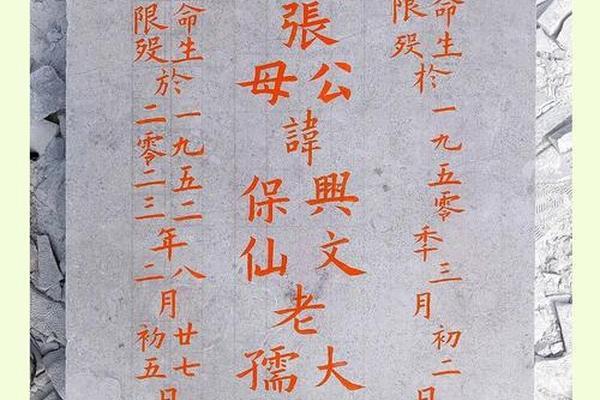 命生扵一九五零秊三月初二日
限殁
張公諱興文老大
母保仙孺
命生於一九五二年八月廿七日
限殁二零二三二初五